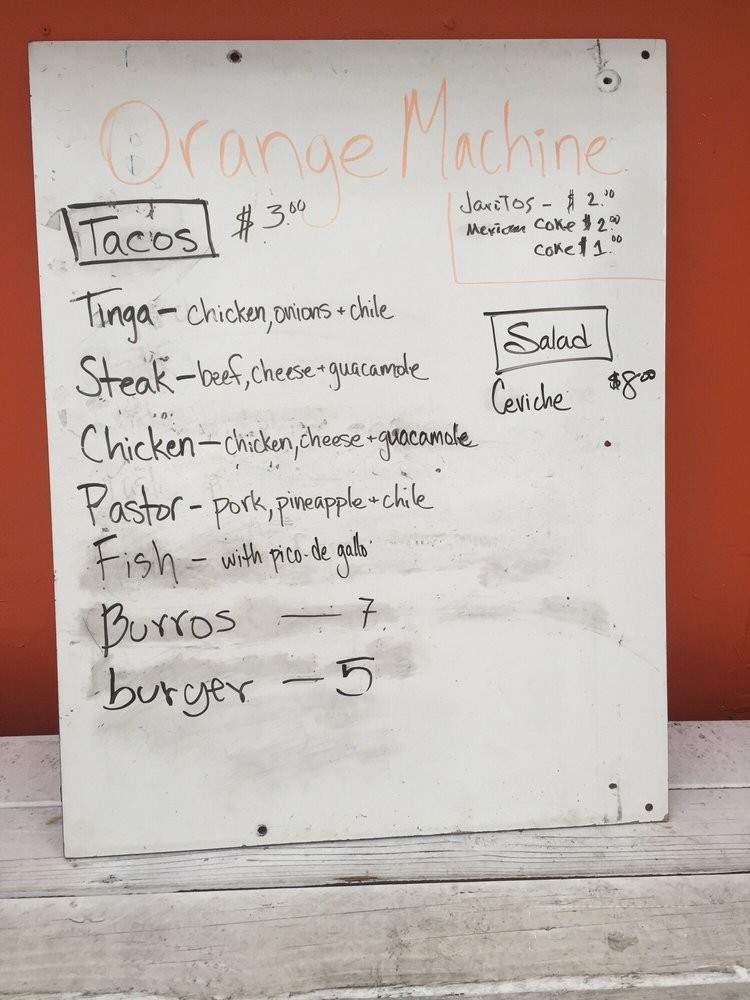 Orange Machine
Tacos $ 3.00
Jaritos - $ 2.00
Mexican Coke $ 2.00
Coke $ 1.00
Tinga - chicken, onions + chile
Steak - beef, cheese + guacamole
Chicken - chicken, cheese + guacamole
Pastor - pork, pineapple + chile
Fish - with pico de gallo
Burros - 7
burger - 5
Salad
Ceviche $8.00